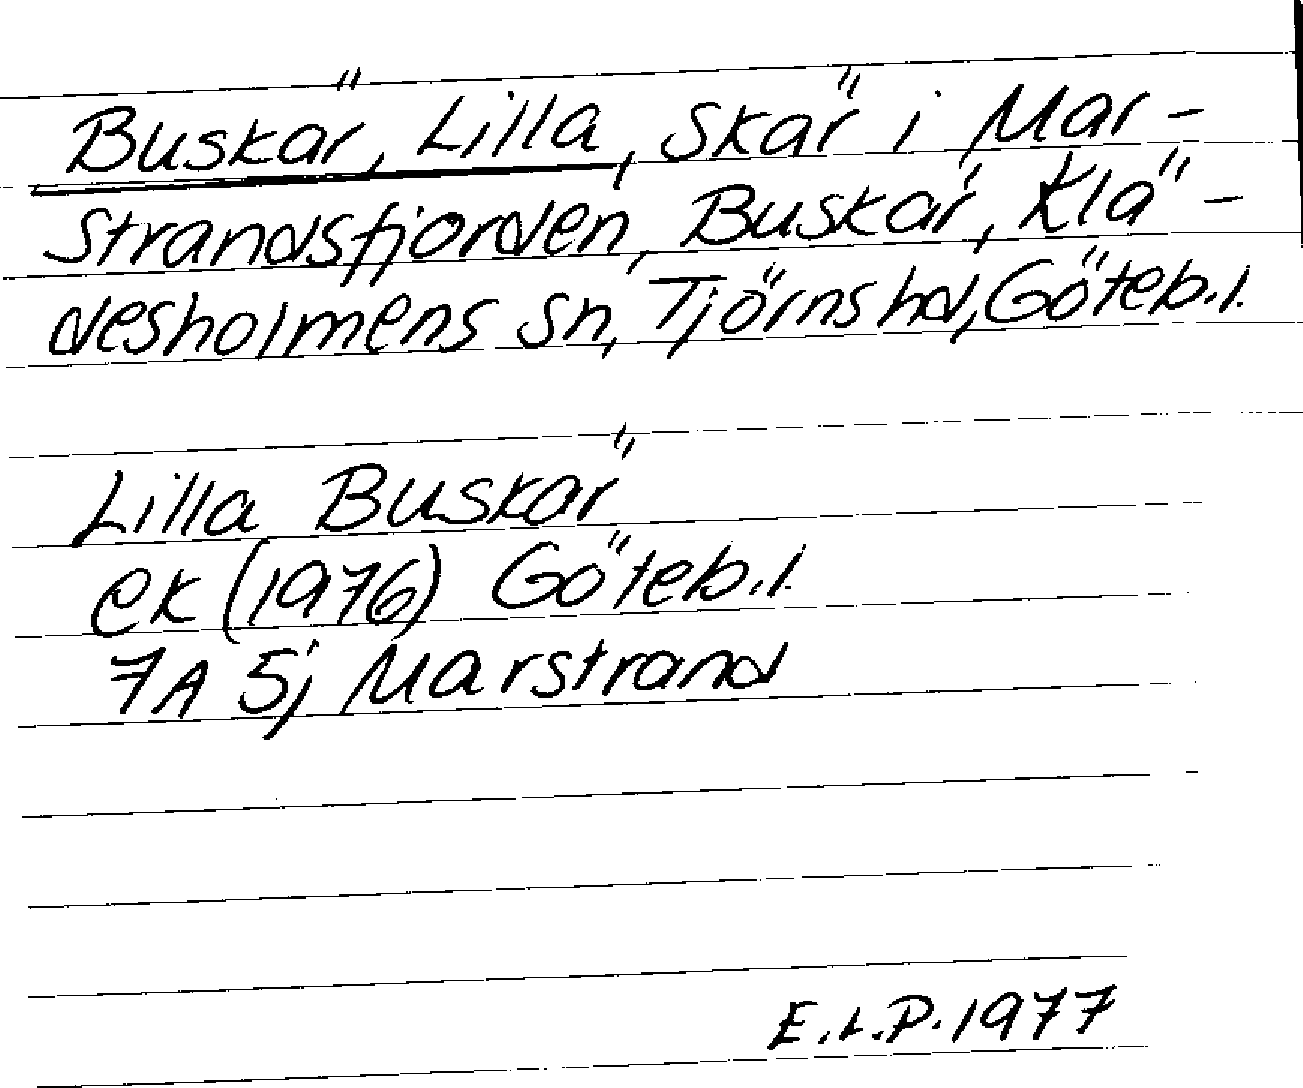 Buskär, Lilla, skär i Mar-
strandsfjorden, Buskär, Klä-
desholmens sn, Tjörns hd, Göteb.l.
Lilla Buskär
ek (1976) Göteb.l.
7A 5j Marstrand
E.L.P. 1977